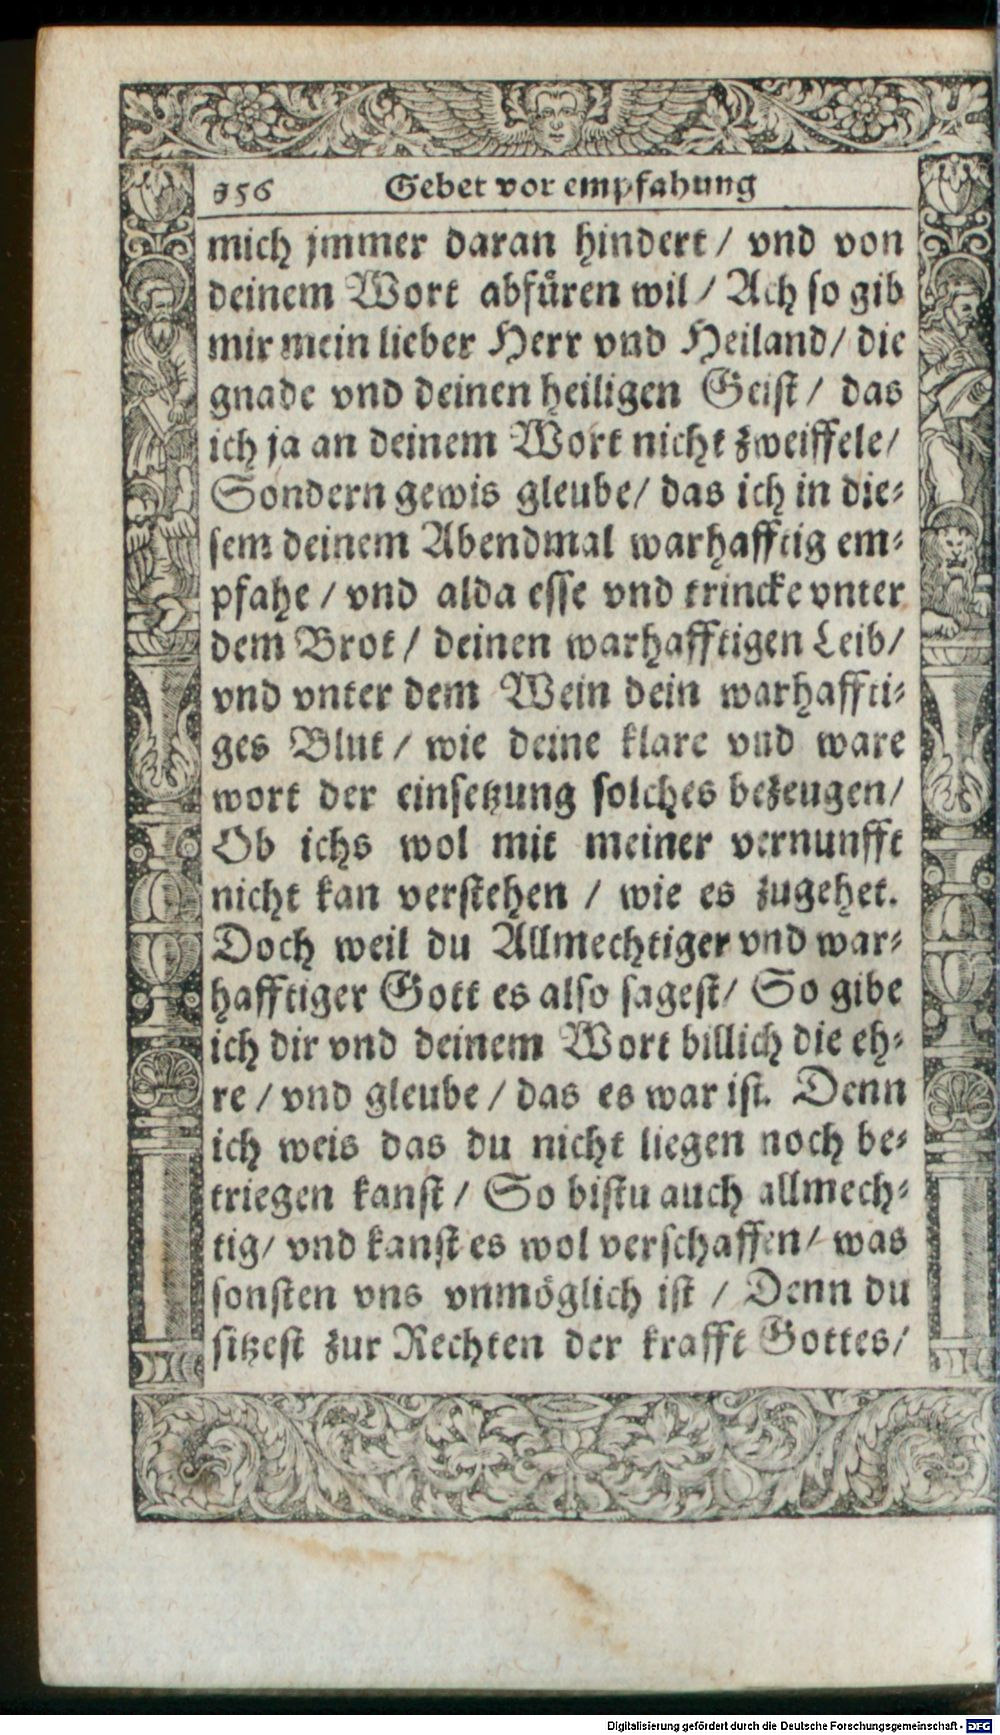 356 Gebet vor empfahung
mich jmmer daran hindert / vnd von
deinem Wort abfüren wil / Ach so gib
mir mein lieber Herr vnd Heiland / die
gnade vnd deinen heiligen Geist / das
ich ja an deinem Wort nicht zweiffele /
Sondern gewis gleube / das ich in die⸗
sem deinem Abendmal warhafftig em⸗
pfahe / vnd alda esse vnd trincke vnter
dem Brot / deinen warhafftigen Leib /
vnd vnter dem Wein dein warhaffti⸗
ges Blut / wie deine klare vnd ware
wort der einsetzung solches bezeugen /
Ob ichs wol mit meiner vernunfft
nicht kan verstehen / wie es zugehet.
Doch weil du Allmechtiger vnd war⸗
hafftiger Gott es also sagest / So gibe
ich dir vnd deinem Wort billich die eh⸗
re / vnd gleube / das es war ist. Denn
ich weis das du nicht liegen noch be⸗
triegen kanst / So bistu auch allmech⸗
tig / vnd kanst es wol verschaffen / was
sonsten vns vnmöglich ist / Denn du
sitzest zur Rechten der krafft Gottes /
Digitalisierung gefördert durch die Deutsche Forschungsgemeinschaft - DFG